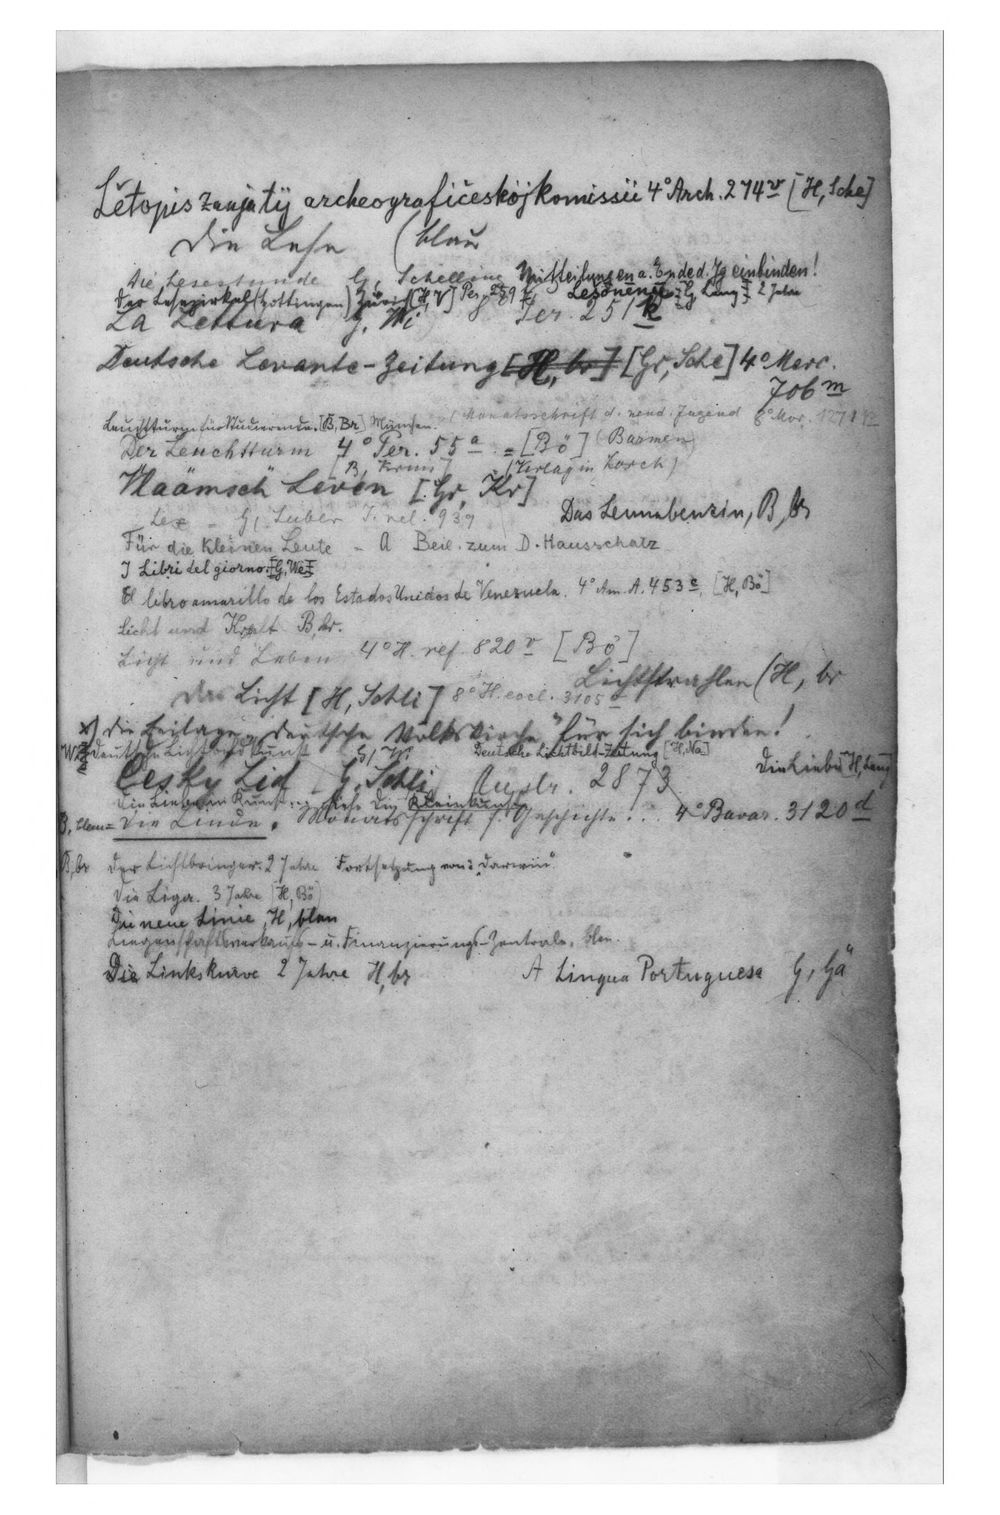 Lětopis zanjatij archeografičeskoj komissii 4° Arch. 274 v [H, Sche]
Die Lese (blau
Die Lesestunde G, Schelling Mitteilungen a. Ende d. Jg einbinden!
Der Lesezirkel (Hottingen) Zürich [H, V] Per.
La Lettura G, Wi Per. 251 k
Deutsche Levante-Zeitung [H, br] [Gr, Sche] 4° Merc.
706 m
Leuchtturm für Studierende. [B, Br] München. (Monatsschrift d. neud. Jugend 8° Mor.
Der Leuchtturm 4° Per. 55 a = [Bö] (Barmen)
[B, Krins] (Verlag in Lorch)
Maämsch Leven [Gr, Kr]
Lex - G, Luber J. rel. 939 Das Leunabenzin, B, br
Für die kleinen Leute - A Beil. zum D. Hausschatz
I Libri del giorno. [G, We]
El libro amarillo de los Estados Unidos de Venezuela. 4° Am. A. 453 c [H, Bö]
Licht und Kraft B, br.
Licht und Leben 4° H. ref. 820 v [Bö]
Lichtstrahlen (H, br
das Licht [H, Schli] 8° H. eccl. 3105
x) Die Beilage "Deutsche Volkskirche" für sich binden!
Deutsche Licht und Kunst G, Wi Deutsche Lichtbild-Zeitung [H, Na]
Česky Lid G, Schli Austr. 2873 Die Liebe [H, Lang]
siehe Die Kleinkunst
Die Linde. Monatsschrift f. Geschichte. 4° Bavar. 3120 d
B, br Der Lichtbringer. 2 Jahre Fortsetzung von: "Darwin"
Die Liga. 3 Jahre [H, Bö]
Die neue Linie, H, blau
Liegenschaftsverkaufs- u. Finanzierungs-Zentrale, blau.
Die Linkskurve 2 Jahre H, br A Lingua Portuguesa G, Gä